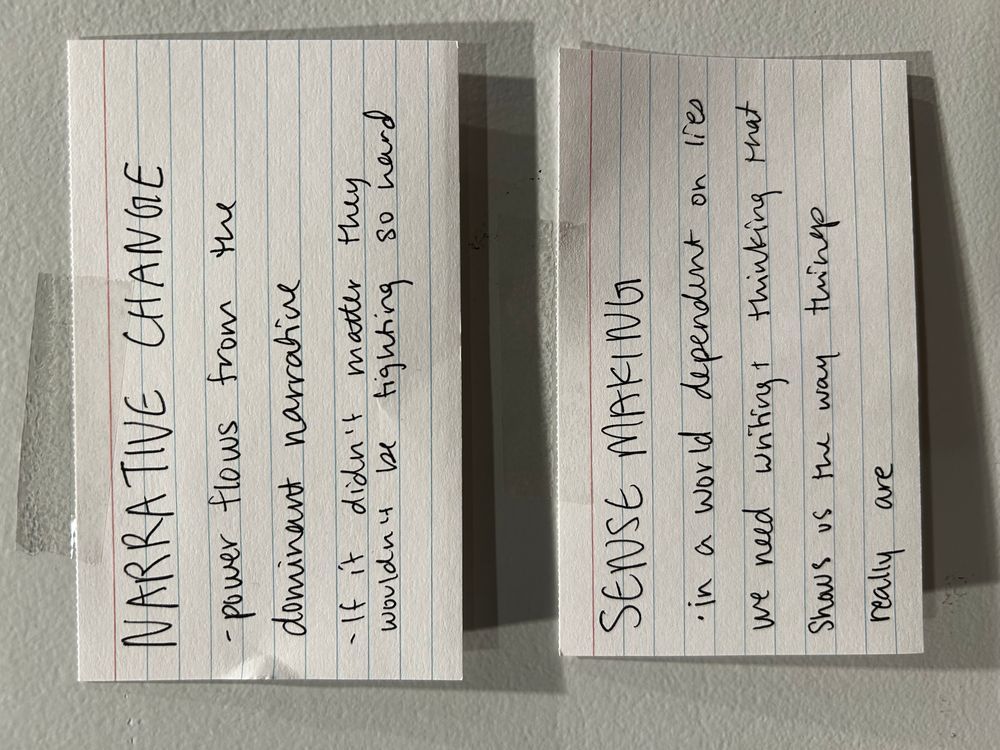 NARRATIVE CHANGE
- power flows from the
dominant narrative
- If it didn't matter they
wouldn't be fighting so hard
SENSE MAKING
· in a world dependent on lies
we need writing + thinking that
shows us the way things
really are